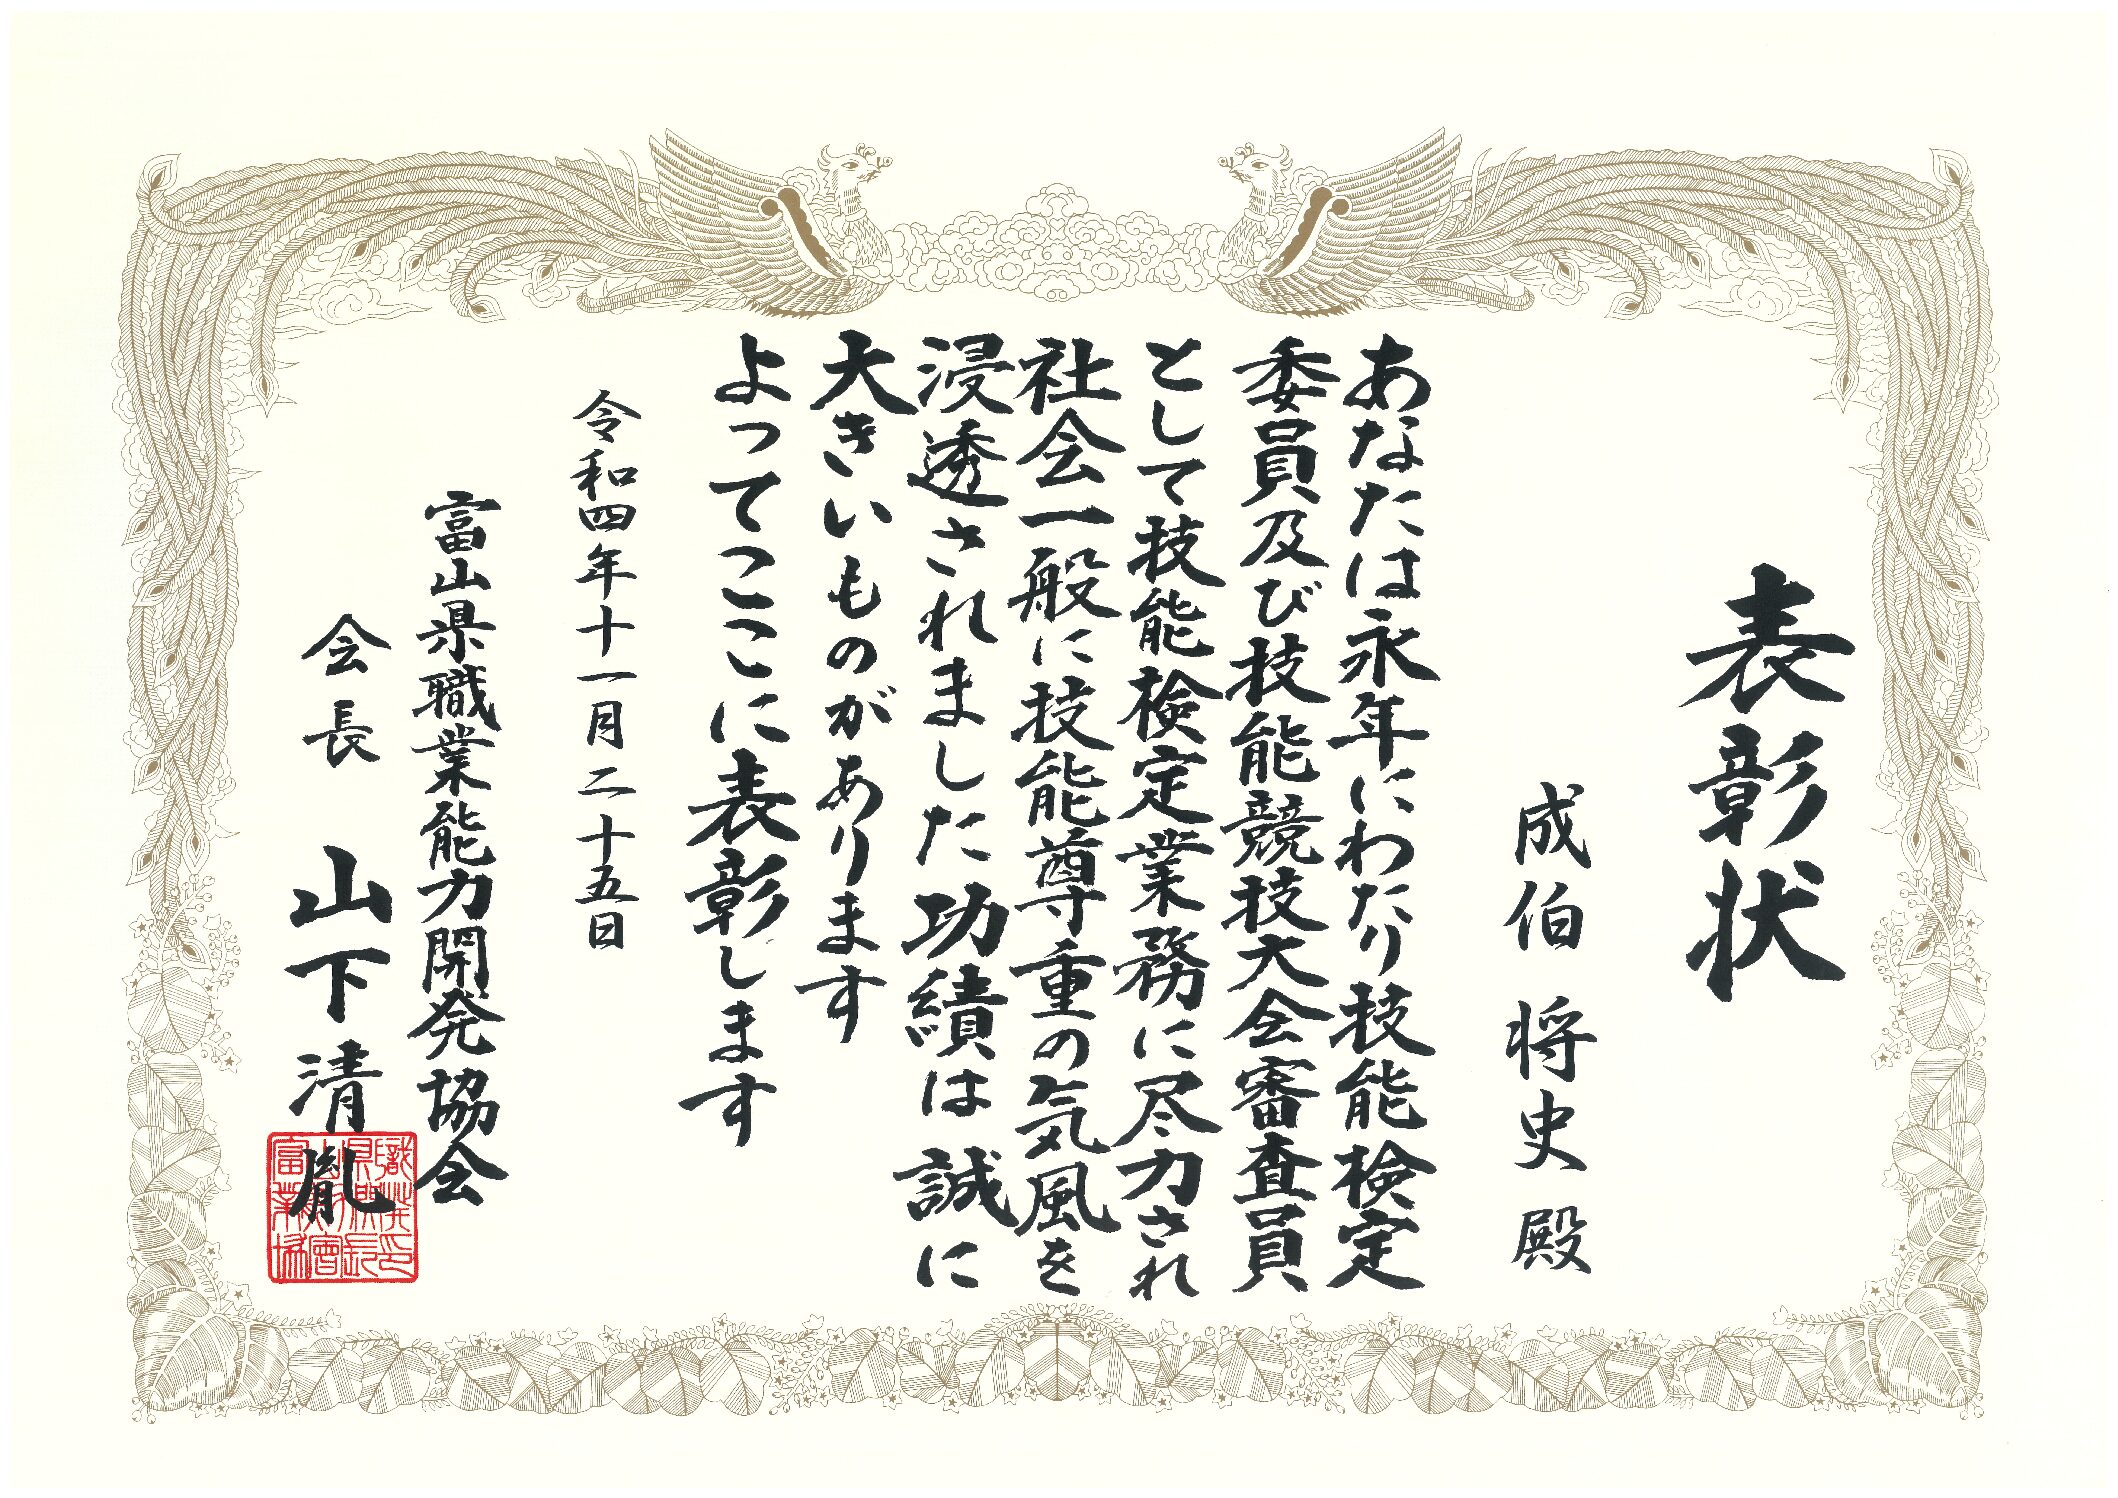 表彰状
成伯 将史 殿
あなたは永年にわたり技能検定
委員及び技能競技大会審査員
として技能検定業務に尽力され
社会一般に技能尊重の気風を
浸透されました功績は誠に
大きいものがあります
よってここに表彰します
令和四年十一月二十五日
富山県職業能力開発協会
会長 山下清胤